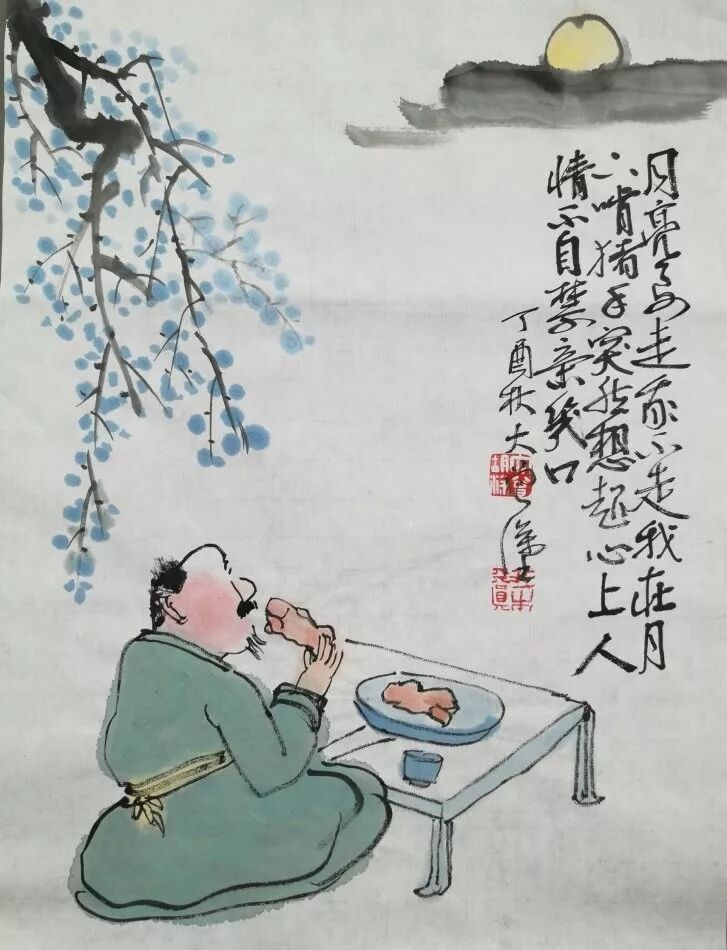 月亮要走我不走我在月
下啃猪手突然想起心上人
情不自禁亲幾口
丁酉秋大